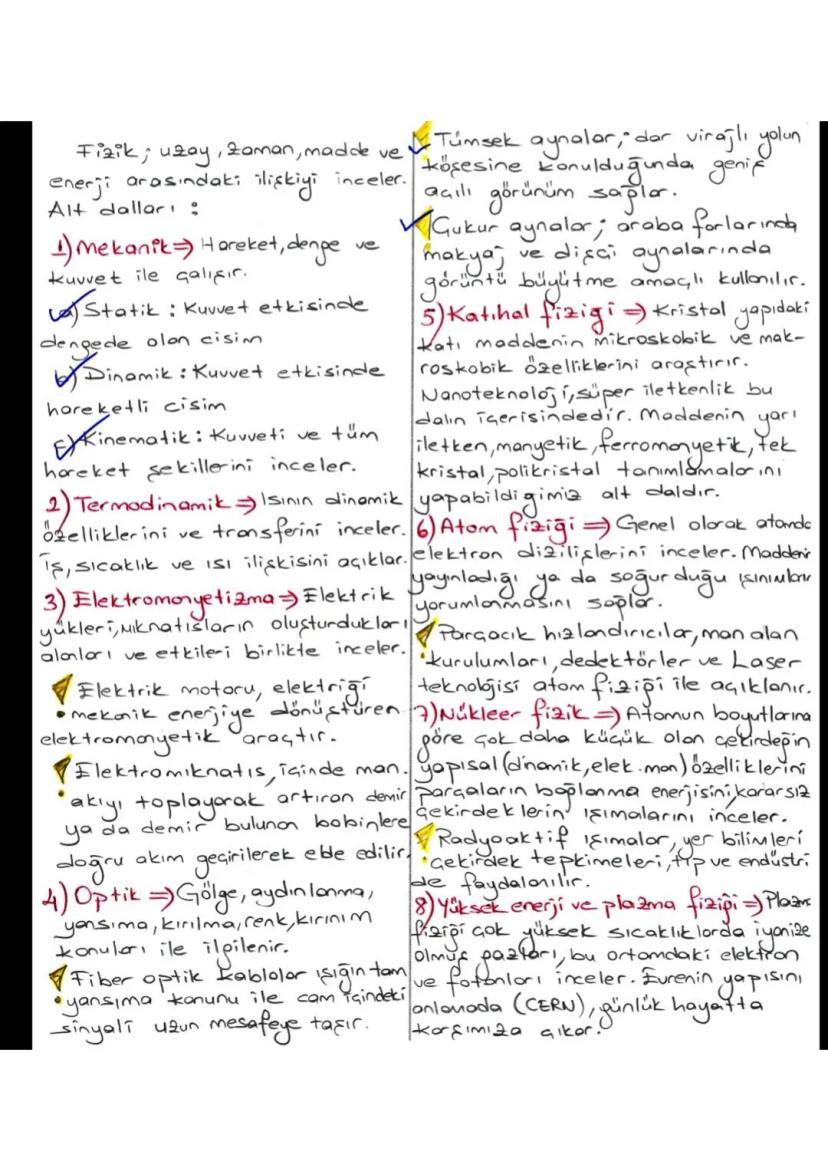 Fizik; uzay, zaman, madde ve
enerji arasındaki ilişkiyi inceler.
Alt dalları :
1) Mekanik ⇒ Hareket, denge ve
kuvvet ile çalışır.
a) Statik : Kuvvet etkisinde
dengede olan cisim
b) Dinamik : Kuvvet etkisinde
hareketli cisim
c) Kinematik : Kuvveti ve tüm
hareket şekillerini inceler.
2) Termodinamik ⇒ Isının dinamik
özelliklerini ve transferini inceler.
İş, sıcaklık ve ısı ilişkisini açıklar.
3) Elektromanyetizma ⇒ Elektrik
yükleri, mıknatısların oluşturdukları
alanları ve etkileri birlikte inceler.
Elektrik motoru, elektriği
mekanik enerjiye dönüştüren
elektromanyetik araçtır.
Elektromıknatıs, içinde man.
akıyı toplayarak artıran demir
ya da demir bulunan bobinlere
doğru akım geçirilerek elde edilir.
4) Optik ⇒ Gölge, aydınlanma,
yansıma, kırılma, renk, kırınım
konuları ile ilgilenir.
Fiber optik kablolar ışığın tam
yansıma kanunu ile cam içindeki
sinyali uzun mesafeye taşır.
Tümsek aynalar; dar virajlı yolun
köşesine konulduğunda geniş
açılı görünüm sağlar.
Çukur aynalar; araba farlarında
makyaj ve dişçi aynalarında
görüntü büyütme amaçlı kullanılır.
5) Katıhal fiziği ⇒ Kristal yapıdaki
katı maddenin mikroskobik ve mak-
roskobik özelliklerini araştırır.
Nanoteknoloji, süper iletkenlik bu
dalın içerisindedir. Maddenin yarı
iletken, manyetik, ferromanyetik, tek
kristal, polikristal tanımlamalarını
yapabildiğimiz alt daldır.
6) Atom fiziği ⇒ Genel olarak atomda
elektron dizilişlerini inceler. Maddenin
yayınladığı ya da soğurduğu ışınımların
yorumlanmasını sağlar.
Parçacık hızlandırıcılar, man alan
kurulumları, dedektörler ve Laser
teknolojisi atom fiziği ile açıklanır.
7) Nükleer fizik ⇒ Atomun boyutlarına
göre çok daha küçük olan çekirdeğin
yapısal (dinamik, elek. man) özelliklerini
parçaların bağlanma enerjisini, kararsız
çekirdeklerin ışımalarını inceler.
Radyoaktif ışımalar, yer bilimleri
çekirdek tepkimeleri, tıp ve endüstri
de faydalanılır.
8) Yüksek enerji ve plazma fiziği ⇒ Plazma
fiziği çok yüksek sıcaklıklarda iyonize
olmuş gazları, bu ortamdaki elektron
ve fotonları inceler. Evrenin yapısını
anlamada (CERN), günlük hayatta
karşımıza çıkar.